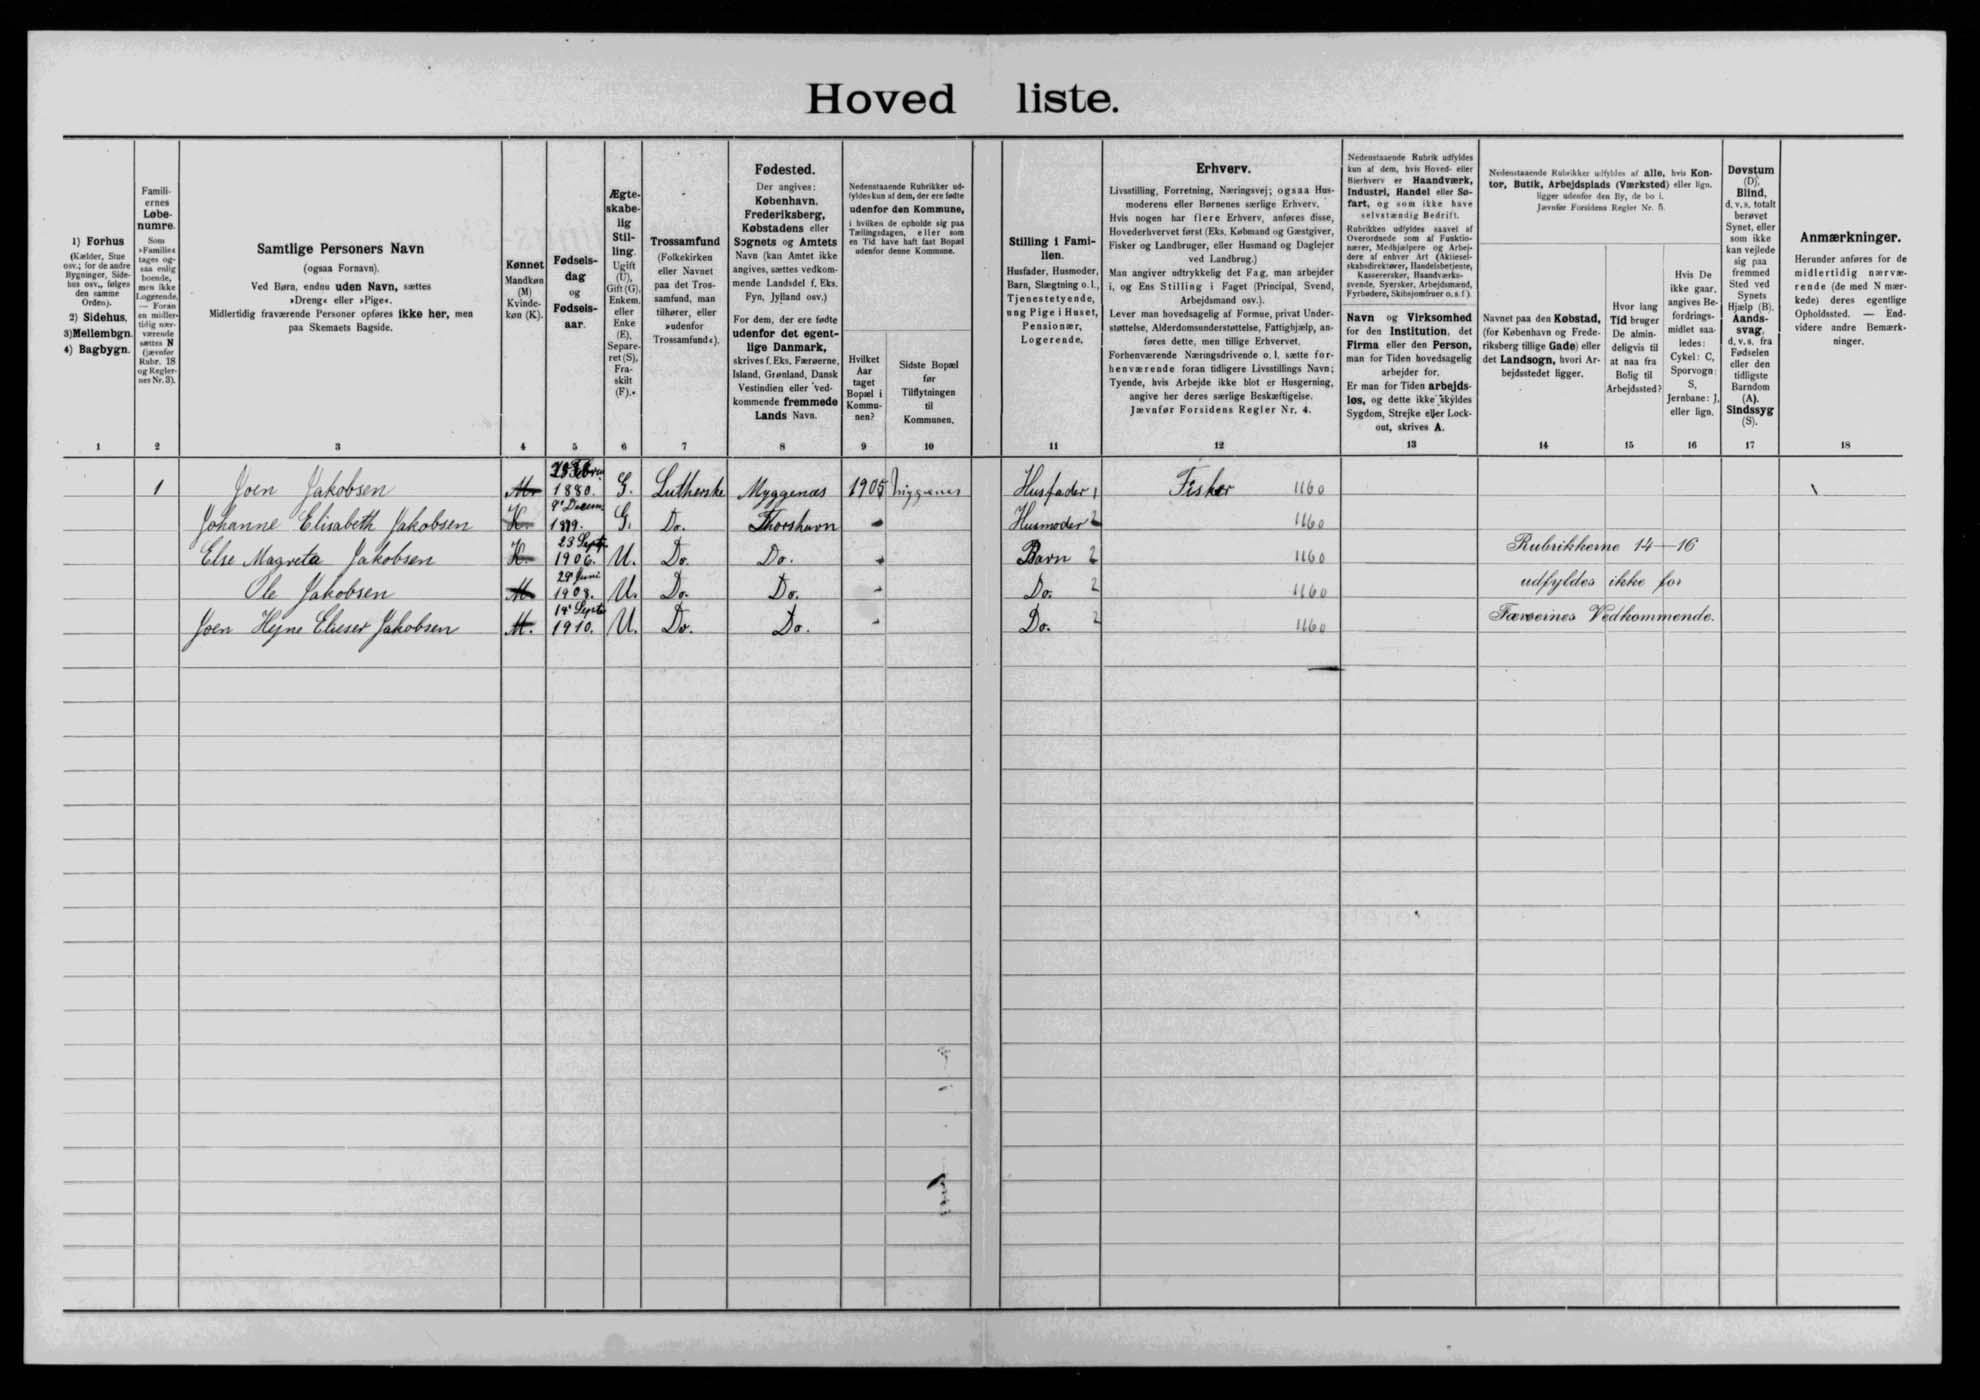 Hoved liste.
1) Forhus
(Kælder, Stue
osv.; for de andre
Bygninger, Side-
hus osv., følges
den samme
Orden).
2) Sidehus,
3) Mellembgn.
4) Bagbygn.
Famili-
ernes
Løbe-
numre.
Som
»Familie«
tages og-
saa enlig
boende,
men ikke
Logerende.
— Foran
en midler-
tidig nær-
værende
sættes N
(jævnfør
Rubr. 18
og Regler-
nes Nr. 3).
Samtlige Personers Navn
(ogsaa Fornavn).
Ved Børn, endnu uden Navn, sættes
»Dreng« eller »Pige«.
Midlertidig fraværende Personer opføres ikke her, men
paa Skemaets Bagside.
Kønnet
Mandkøn
(M)
Kvinde-
køn (K).
Fødsels-
dag
og
Fødsels-
aar.
Ægte-
skabe-
lig
Stil-
ling.
Ugift
(U),
Gift (G),
Enkem.
eller
Enke
(E),
Separe-
ret (S),
Fra-
skilt
(F).
Trossamfund
(Folkekirken
eller Navnet
paa det Tros-
samfund, man
tilhører, eller
»udenfor
Trossamfund«).
Fødested.
Der angives:
København,
Frederiksberg,
Købstadens eller
Sognets og Amtets
Navn (kan Amtet ikke
angives, sættes vedkom-
mende Landsdel f. Eks.
Fyn, Jylland osv.)
For dem, der ere fødte
udenfor det egent-
lige Danmark,
skrives f. Eks. Færøerne,
Island, Grønland, Dansk
Vestindien eller ved-
kommende fremmede
Lands Navn.
Nedenstaaende Rubrikker ud-
fyldes kun af dem, der ere fødte
udenfor den Kommune,
i hvilken de opholde sig paa
Tællingsdagen, eller som
en Tid have haft fast Bopæl
udenfor denne Kommune.
Hvilket
Aar
taget
Bopæl i
Kommu-
nen?
Sidste Bopæl
før
Tilflytningen
til
Kommunen.
Stilling i Fami-
lien.
Husfader, Husmoder,
Barn, Slægtning o. l.,
Tjenestetyende,
ung Pige i Huset,
Pensionær,
Logerende.
Erhverv.
Livsstilling, Forretning, Næringsvej; ogsaa Hus-
moderens eller Børnenes særlige Erhverv.
Hvis nogen har flere Erhverv, anføres disse,
Hovederhvervet først (Eks. Købmand og Gæstgiver,
Fisker og Landbruger, eller Husmand og Daglejer
ved Landbrug.)
Man angiver udtrykkelig det Fag, man arbejder
i, og Ens Stilling i Faget (Principal, Svend,
Arbejdsmand osv.).
Lever man hovedsagelig af Formue, privat Under-
støttelse, Alderdomsunderstøttelse, Fattighjælp, an-
føres dette, men tillige Erhvervet.
Forhenværende Næringsdrivende o. l. sætte for-
henværende foran tidligere Livsstillings Navn;
Tyende, hvis Arbejde ikke blot er Husgerning,
angive her deres særlige Beskæftigelse.
Jævnfør Forsidens Regler Nr. 4.
Nedenstaaende Rubrik udfyldes
kun af dem, hvis Hoved- eller
Bierhverv er Haandværk,
Industri, Handel eller Sø-
fart, og som ikke have
selvstændig Bedrift.
Rubrikken udfyldes saavel af
Overordnede som af Funktio-
nærer, Medhjælpere og Arbej-
dere af enhver Art (Aktiesel-
skabsdirektører, Handelsbetjente,
Kasserersker, Haandværks-
svende, Syersker, Arbejdsmænd,
Fyrbødere, Skibsjomfruer o. s. f.).
Navn og Virksomhed
for den Institution, det
Firma eller den Person,
man for Tiden hovedsagelig
arbejder for.
Er man for Tiden arbejds-
løs, og dette ikke skyldes
Sygdom, Strejke eller Lock-
out, skrives A.
Nedenstaaende Rubrikker udfyldes af alle, hvis Kon-
tor, Butik, Arbejdsplads (Værksted) eller lign.
ligger udenfor den By, de bo i.
Jævnfør Forsidens Regler Nr. 5.
Navnet paa den Købstad,
(for København og Frede-
riksberg tillige Gade) eller
det Landsogn, hvori Ar-
bejdsstedet ligger.
Hvor lang
Tid bruger
De almin-
deligvis til
at naa fra
Bolig til
Arbejdssted?
Hvis De
ikke gaar,
angives Be-
fordrings-
midlet saa-
ledes:
Cykel: C,
Sporvogn:
S,
Jernbane: J,
eller lign.
Døvstum
(D),
Blind,
d. v. s. totalt
berøvet
Synet, eller
som ikke
kan vejlede
sig paa
fremmed
Sted ved
Synets
Hjælp (B).
Aands-
svag,
d. v. s. fra
Fødselen
eller den
tidligste
Barndom
(A).
Sindssyg
(S).
Anmærkninger.
Herunder anføres for de
midlertidig nærvæ-
rende (de med N mær-
kede) deres egentlige
Opholdssted. — End-
videre andre Bemærk-
ninger.
1 2 3 4 5 6 7 8 9 10 11 12 13 14 15 16 17 18
1 Joen Jakobsen M. Febru. 1880. G. Lutherske Myggenæs 1905 Husfader 1 Fisker 1160
Johanne Elisabeth Jakobsen K. 9' Decem. 1879. G. Do. Thorshavn Husmoder 2 1160
Else Magreta Jakobsen K. 23 Sept. 1906. U. Do. Do. Barn 2 1160
Ole Jakobsen M. 29' Juni 1908. U. Do. Do. Do. 2 1160
Joen Hejne Elieser Jakobsen M. 14' Sept. 1910. U. Do. Do. Do. 2 1160
Rubrikkerne 14—16
udfyldes ikke for
Færøernes Vedkommende.